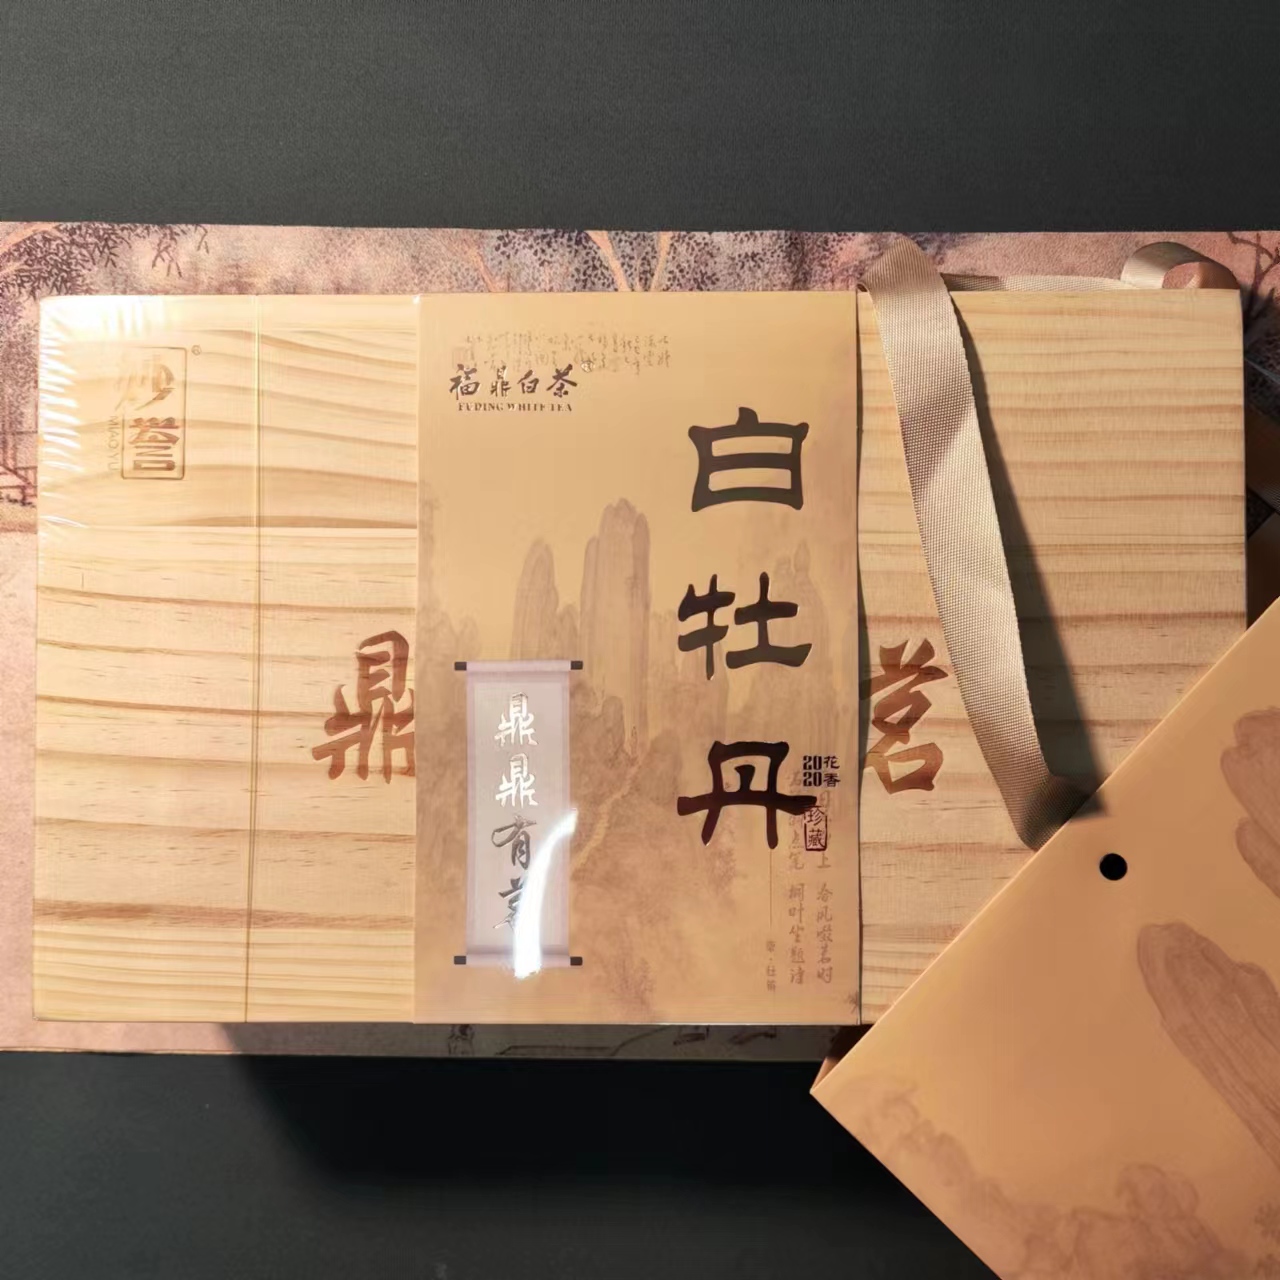 妙誉
®
MIAOYU
福鼎白茶
FUDING WHITE TEA
白牡丹
2020
花香
珍藏
鼎鼎有茗
鼎
茗
桐叶坐题诗
合风啜茗时